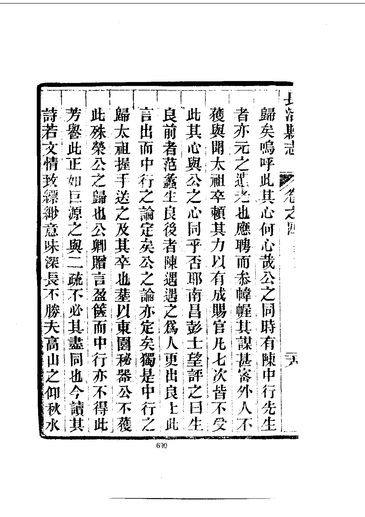 長治縣志 卷之四
歸矣嗚呼此其心何心哉公之同時有陳中行先生
者亦元之遺老也應聘而參幃幄其謀甚密外人不
獲與聞太祖卒賴其力以有成賜官凡七次皆不受
此其心與公之心同乎否耶南昌彭士望評之曰生
良前者范蠡生良後者陳遇遇之為人更出良上此
言出而中行之論定矣公之論亦定矣獨是中行之
歸太祖握手送之及其卒也葬以東園秘器公不獲
此殊榮公之歸也公卿贈言盈篋而中行亦不得此
芳譽此正如巨源之與二疏不必其盡同也今讀其
詩若文情致縹緲意味深長不勝夫高山之仰秋水